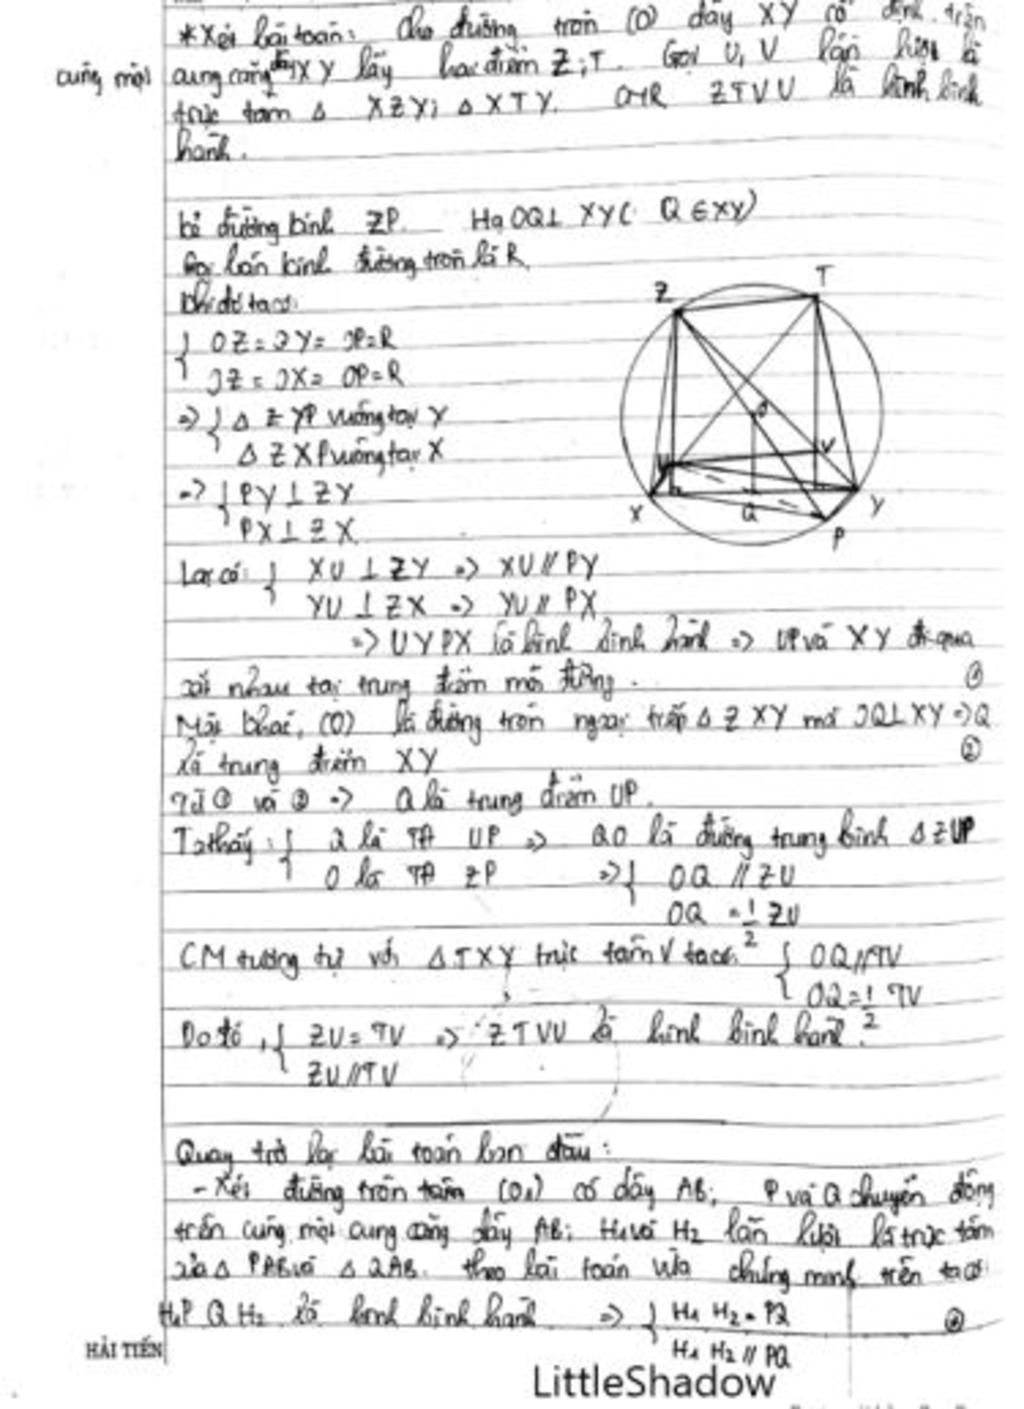 *Xét bài toán: Cho đường tròn (O) dây XY cố định. trên
cùng một cung căng dây XY lấy hai điểm Z; T. Gọi U, V lần lượt là
trực tâm Δ XZY; Δ XTY. CMR ZTVU là hình bình
hành.
kẻ đường kính ZP. Hạ OQ⊥ XY( Q ∈ XY)
Gọi bán kính đường tròn là R.
Khi đó ta có:
{ OZ = OY = OP = R
OZ = OX = OP = R
=> { Δ ZYP vuông tại Y
Δ ZXP vuông tại X
=> { PY ⊥ ZY
PX ⊥ ZX
Lại có: { XU ⊥ ZY => XU // PY
YU ⊥ ZX => YU // PX
=> UYPX là hình bình hành => UP và XY đi qua
cắt nhau tại trung điểm mỗi đường. ①
Mặt khác, (O) là đường tròn ngoại tiếp Δ ZXY mà OQ⊥XY => Q
là trung điểm XY ②
Từ ① và ② => Q là trung điểm UP.
Ta thấy: { Q là TĐ UP => QO là đường trung bình ΔZUP
O là TĐ ZP => { OQ // ZU
OQ = 1/2 ZU
CM tương tự với ΔTXY trực tâm V ta có: { OQ//TV
OQ = 1/2 TV
Do đó, { ZU = TV => ZTVU là hình bình hành.
ZU//TV
Z
T
O
U
V
X
Q
Y
P
Quay trở lại bài toán ban đầu:
- Xét đường tròn tâm (O₁) có dây AB; P và Q chuyển động
trên cùng một cung căng dây AB; H₁ và H₂ lần lượt là trực tâm
của Δ PAB và Δ QAB. theo bài toán vừa chứng minh trên ta có:
H₁PQH₂ là hình bình hành => { H₁H₂ = PQ
H₁H₂ // PQ
HẢI TIẾN
LittleShadow